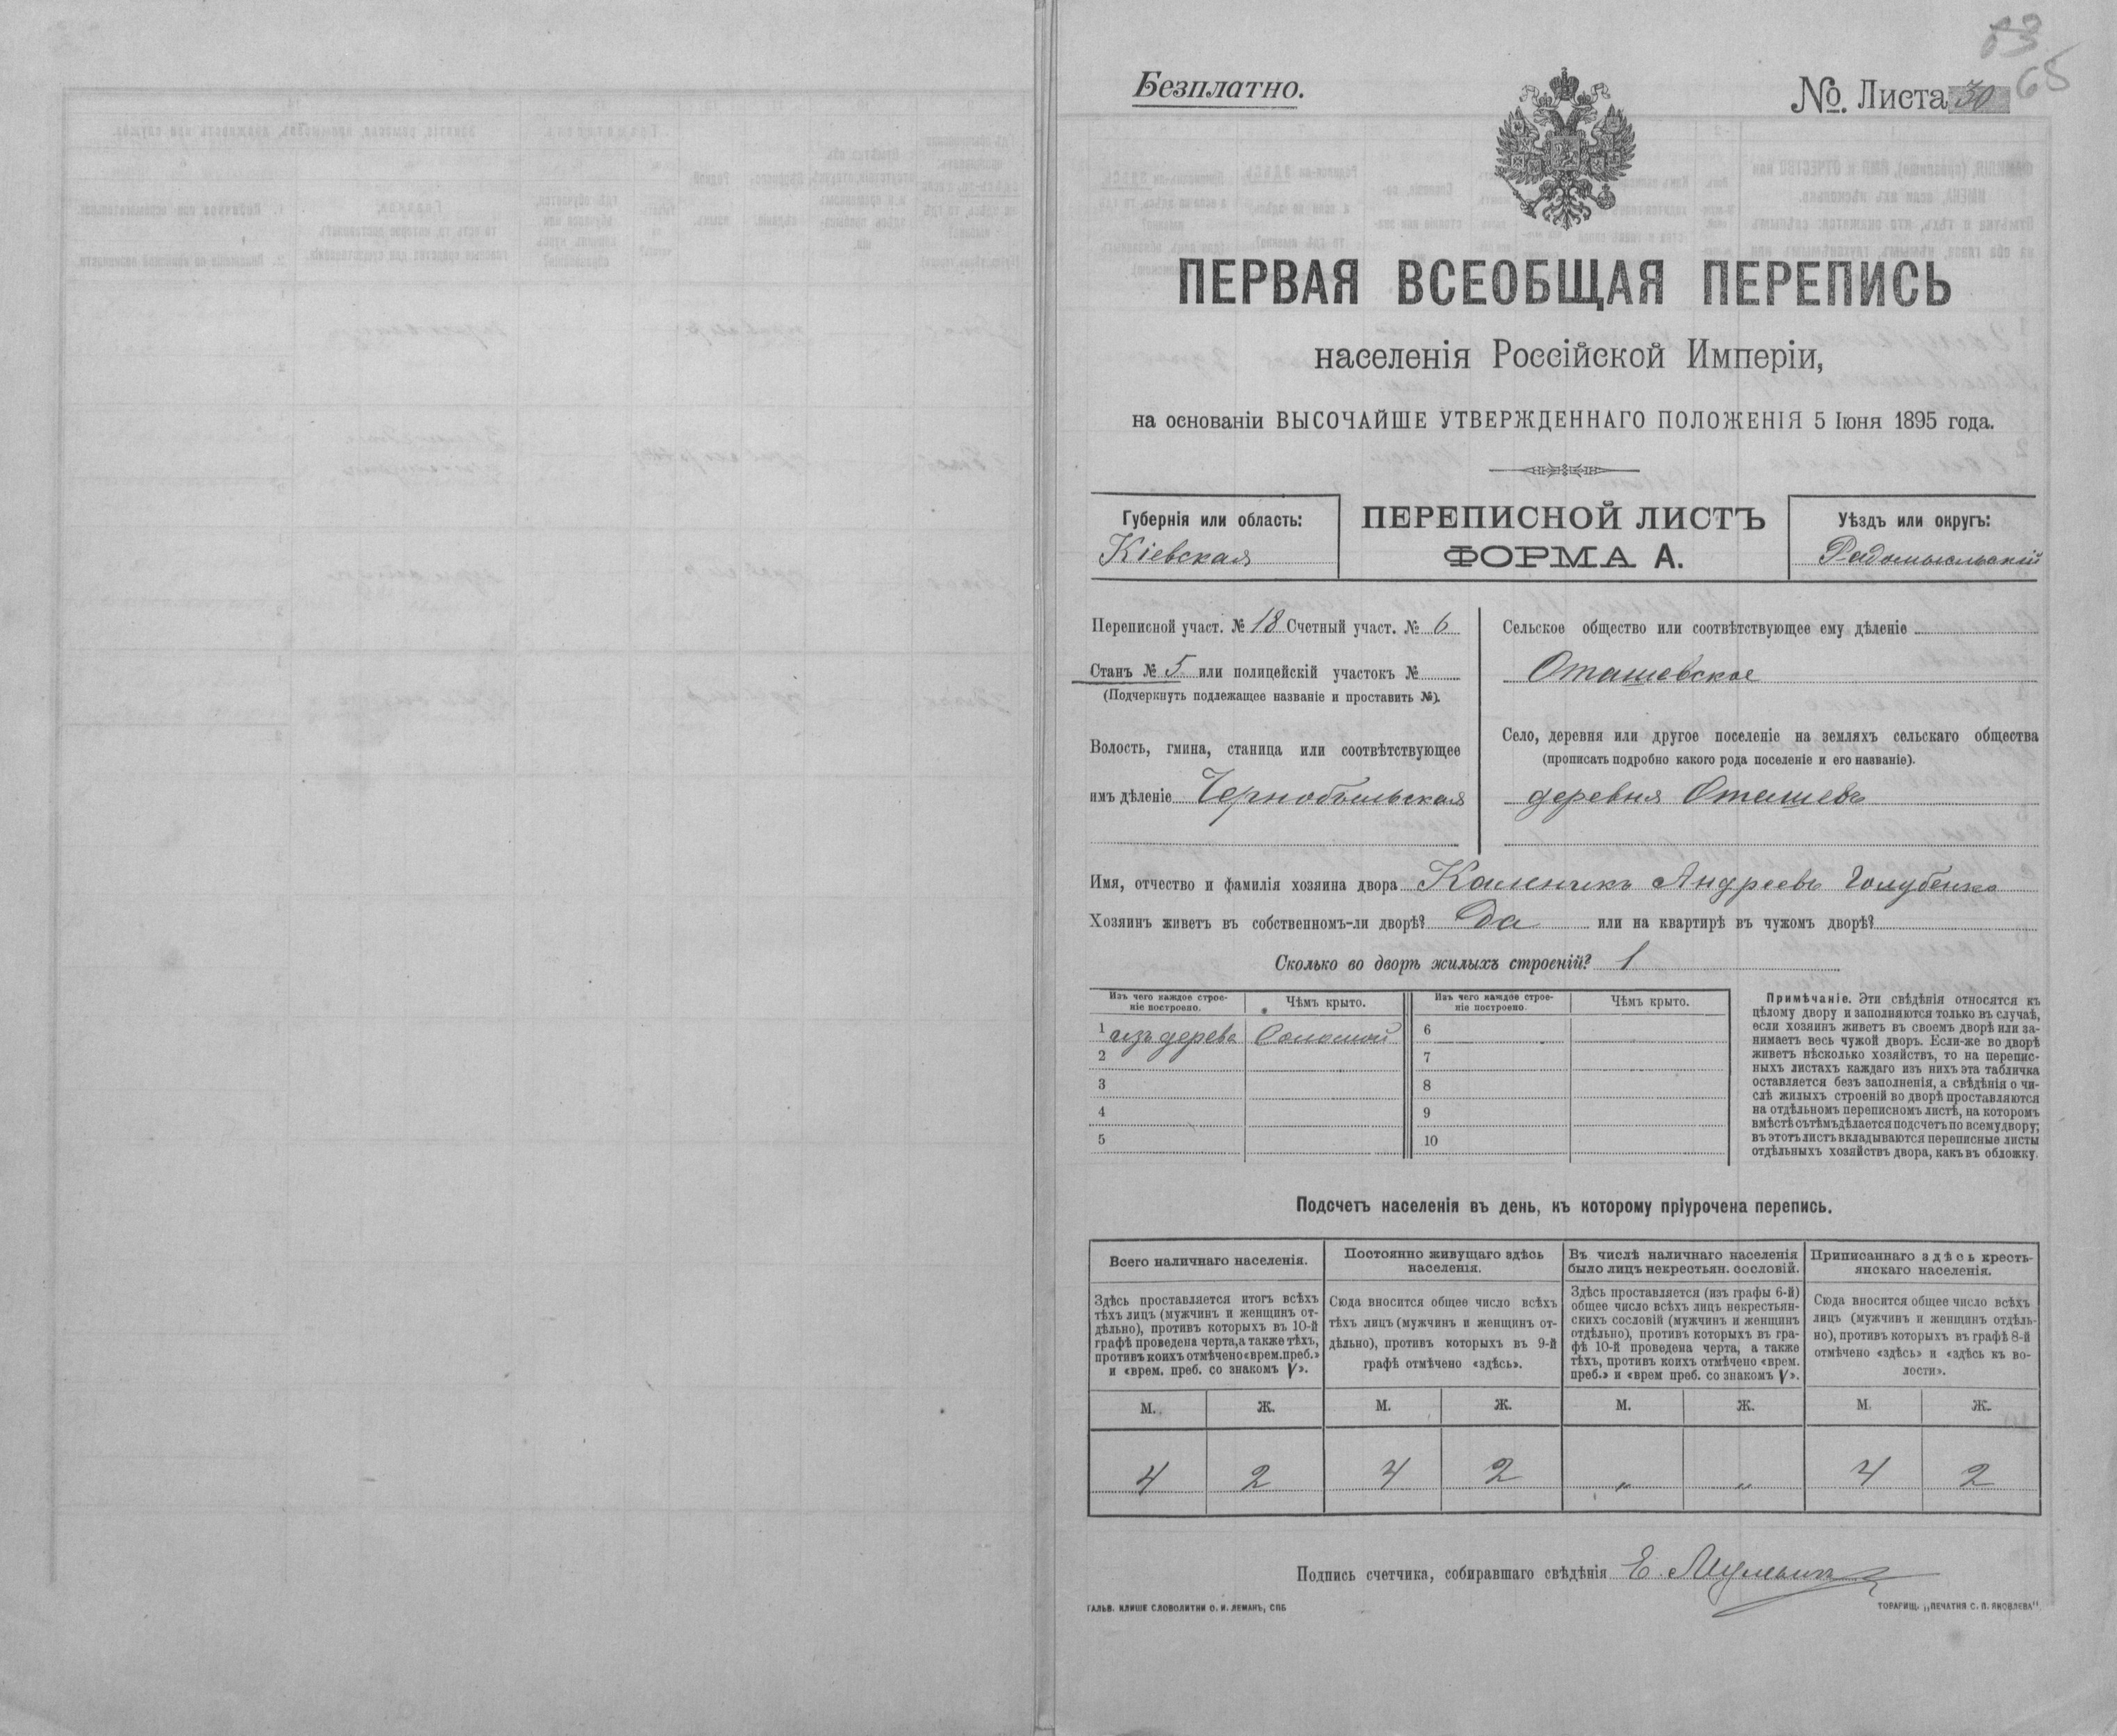 63
65
Безплатно.
№. Листа 30
ПЕРВАЯ ВСЕОБЩАЯ ПЕРЕПИСЬ
населенія Россійской Имперіи,
на основаніи ВЫСОЧАЙШЕ УТВЕРЖДЕННАГО ПОЛОЖЕНІЯ 5 Іюня 1895 года.
Губернія или область:
Кіевская
ПЕРЕПИСНОЙ ЛИСТЪ
ФОРМА А.
Уѣздъ или округъ:
Радомысльскій
Переписной участ. № 18 Счетный участ. № 6
Станъ № 5 или полицейскій участокъ №
(Подчеркнуть подлежащее названіе и проставить №).
Волость, гмина, станица или соотвѣтствующее
имъ дѣленіе Чернобыльская
Сельское общество или соотвѣтствующее ему дѣленіе
Оташевское
Село, деревня или другое поселеніе на земляхъ сельскаго общества
(прописать подробно какого рода поселеніе и его названіе).
деревня Оташевъ
Имя, отчество и фамилія хозяина двора Каленикъ Андреевъ Голубенко
Хозяинъ живетъ въ собственномъ-ли дворѣ? Да или на квартирѣ въ чужомъ дворѣ?
Сколько во дворѣ жилыхъ строеній? 1
Изъ чего каждое строе-
ніе построено.
Чѣмъ крыто.
Изъ чего каждое строе-
ніе построено.
Чѣмъ крыто.
1 изъ дерева Соломой 6
2 7
3 8
4 9
5 10
Примѣчаніе. Эти свѣдѣнія относятся къ
цѣлому двору и заполняются только въ случаѣ,
если хозяинъ живетъ въ своемъ дворѣ или за-
нимаетъ весь чужой дворъ. Если-же во дворѣ
живетъ нѣсколько хозяйствъ, то на перепис-
ныхъ листахъ каждаго изъ нихъ эта табличка
оставляется безъ заполненія, а свѣдѣнія о чи-
слѣ жилыхъ строеній во дворѣ проставляются
на отдѣльномъ переписномъ листѣ, на которомъ
вмѣстѣ сътѣмъ дѣлается подсчетъ по всему двору;
въ этотъ листъ вкладываются переписные листы
отдѣльныхъ хозяйствъ двора, какъ въ обложку.
Подсчетъ населенія въ день, къ которому пріурочена перепись.
Всего наличнаго населенія.
Здѣсь проставляется итогъ всѣхъ
тѣхъ лицъ (мужчинъ и женщинъ от-
дѣльно), противъ которыхъ въ 10-й
графѣ проведена черта, а также тѣхъ,
противъ коихъ отмѣчено «врем. преб.»
и «врем. преб. со знакомъ V».
Постоянно живущаго здѣсь
населенія.
Сюда вносится общее число всѣхъ
тѣхъ лицъ (мужчинъ и женщинъ от-
дѣльно), противъ которыхъ въ 9-й
графѣ отмѣчено «здѣсь».
Въ числѣ наличнаго населенія
было лицъ некрестьян. сословій.
Здѣсь проставляется (изъ графы 6-й)
общее число всѣхъ лицъ некрестьян-
скихъ сословій (мужчинъ и женщинъ
отдѣльно), противъ которыхъ въ гра-
фѣ 10-й проведена черта, а также
тѣхъ, противъ коихъ отмѣчено «врем.
преб.» и «врем преб. со знакомъ V».
Приписаннаго здѣсь кресть-
янскаго населенія.
Сюда вносится общее число всѣхъ
лицъ (мужчинъ и женщинъ отдѣль-
но), противъ которыхъ въ графѣ 8-й
отмѣчено «здѣсь» и «здѣсь къ во-
лости».
М. Ж. М. Ж. М. Ж. М. Ж.
4 2 4 2 „ „ 4 2
Подпись счетчика, собиравшаго свѣдѣнія Е.
ГАЛЬВ. КЛИШЕ СЛОВОЛИТНИ О. И. ЛЕМАНЪ, СПБ
ТОВАРИЩ. „ПЕЧАТНЯ С. П. ЯКОВЛЕВА“.